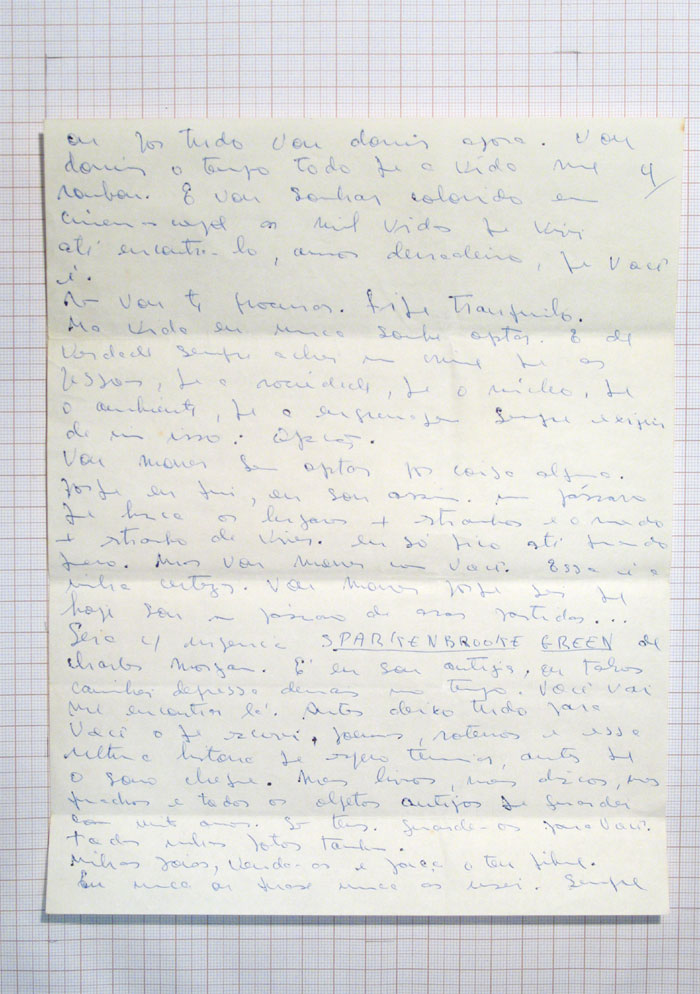 por tudo vou dormir agora. Vou
dormir o tempo todo q e a vida me 4/
roubou. E vou sonhar colorido em
as mil vidas q e vivi
até encontrá-lo, amor derradeiro, q e você
é.
vou te procurar. Fique tranquilo.
Na vida eu nunca soube optar. E de
verdade sempre achei q e as
pessoas, q e a sociedade, q e o núcleo, q e
o ambiente, q e a engrenagem sempre exigiu
de mim isso: opção.
Vou morrer sem optar por coisa alguma.
eu fui, eu sou assim. um pássaro
q e busca os lugares + estranhos e o modo
+ estranho de viver. eu só fico até quando
quero. Mas vou morrer com você. Essa é a
minha certeza. Vou morrer sei q e
hoje sou um pássaro de asas partidas...
Leia c/ urgência SPARKENBROOKE GREEN de
Charles Morgan. E eu sou antiga, eu talvez
caminhei depressa demais no tempo. Você vai
me encontrar lá. Antes deixo tudo para
você o q e escrevi, poemas, roteiros e essa
última história q e espero terminar, antes q e
o sono chegue. Meus livros, meus discos, meus
quadros e todos os objetos antigos q e guardei
com muito amor. São teus. Guarde-os para você.
Todas minhas fotos também.
Minhas joias, venda-as e faça o teu filme.
Eu nunca ou quase nunca as usei. Sempre